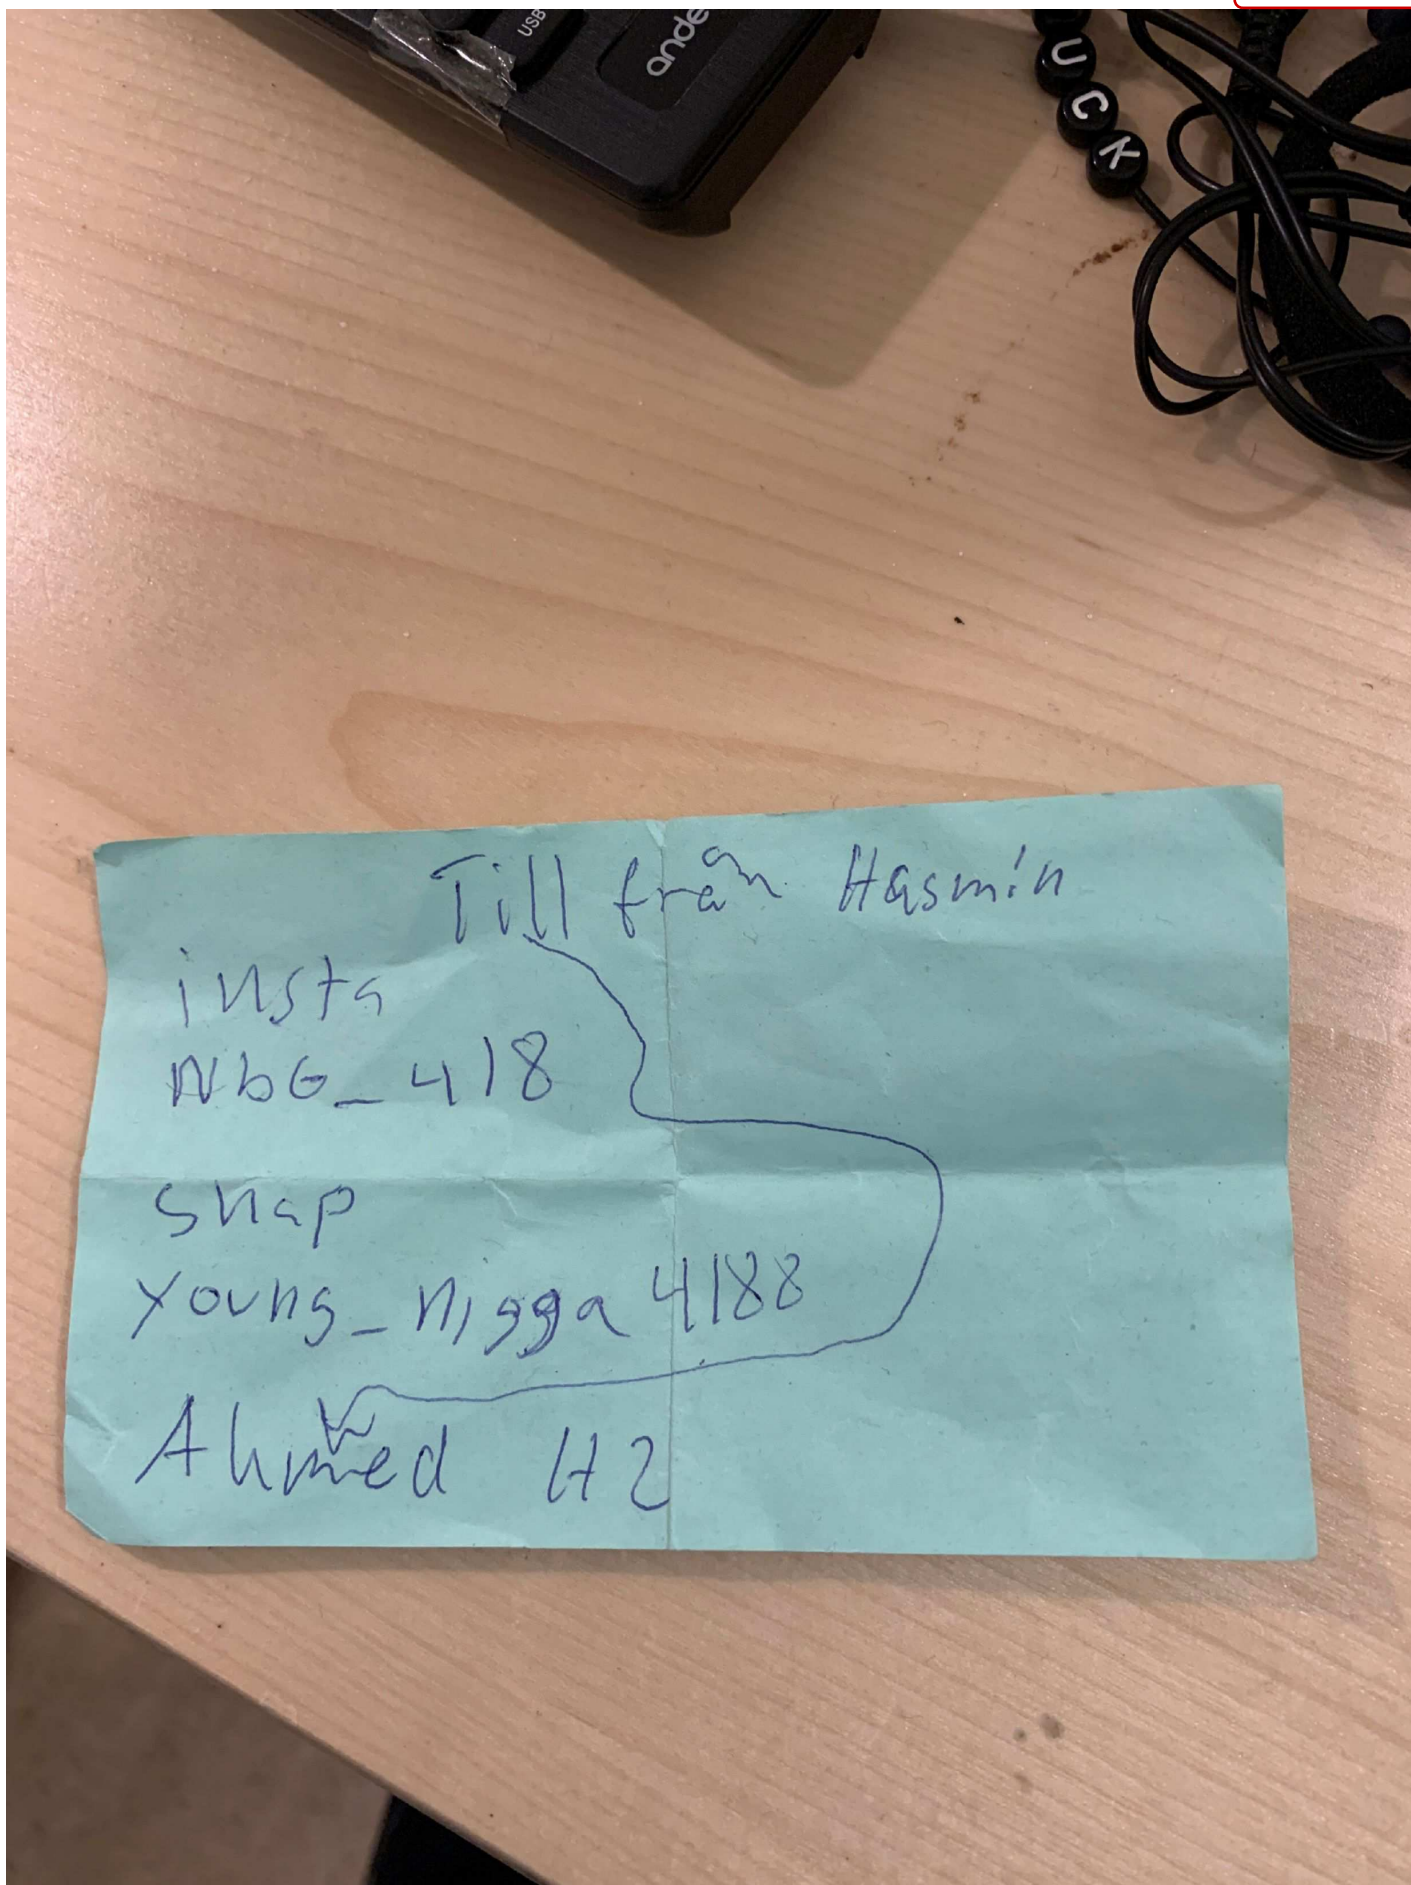 USB
ande
UCK
Till från Hasmin
insta
NbG_418
snap
young_nigga4188
Ahmed H2